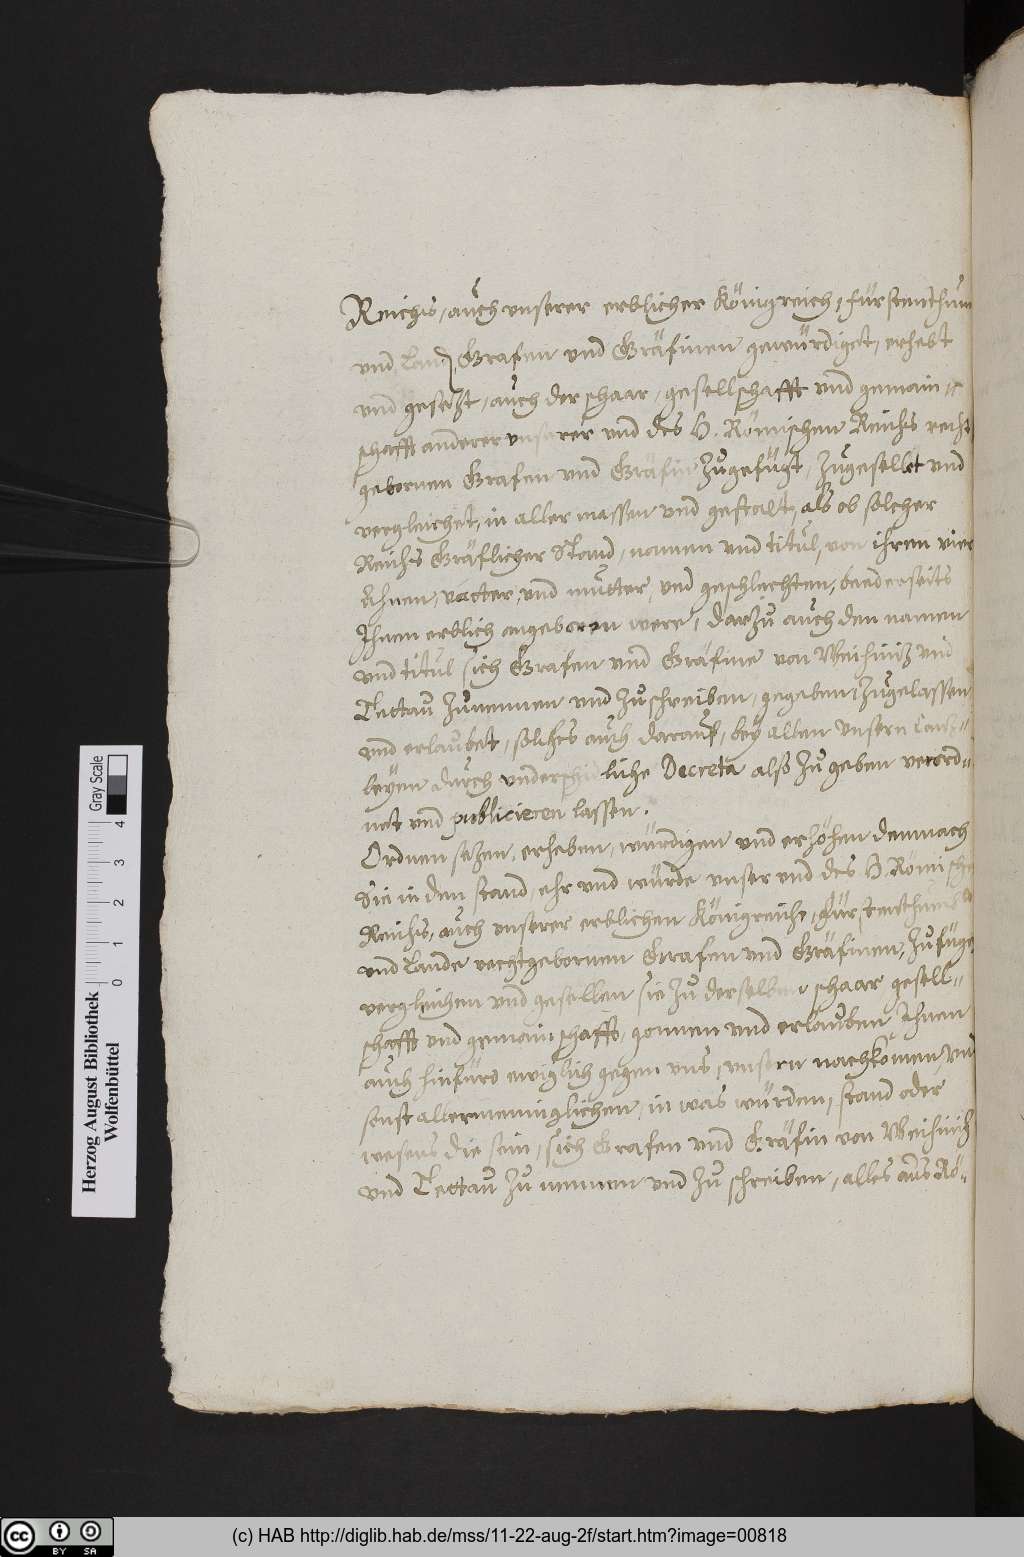 Reichs, auch unserer erblicher Königreich, fürstenthum
vnd Land Grafen vnd Gräfinen gewürdiget, erhebt
vnd gesetzt, auch der schaar, gesellschafft vnd gemain-
schafft anderer unserer vnd des H. Römischen Reichs recht
gebornen Grafen vnd Gräfin zugefügt, zugesellet vnd
vergleichet, in aller massen vnd gestalt, alß ob solcher
Reichs Gräflicher Stand, namen vnd titul, von ihren vier
Ahnen, vatter, vnd mutter, vnd geschlechten, beederseits
Ihnen erblich angeboren were, darzu auch den namen
vnd titul sich Grafen vnd Gräfine von Weihiniz vnd
Tettau zunennen vnd zu schreiben, gegeben, zugelassen
vnd erlaubet, solches auch darauf, bey allen unsern Canz-
leyen durch vnderschidliche Decreta also zu geben verord-
net vnd publicieren lassen.
Ordnen setzen, erheben, würdigen vnd erhöhen demnach
Sie in den stand, ehr vnd würde unser vnd des H. Römische
Reichs, auch unserer erblichen Königreiche, Fürstenthumb
vnd Lande rechtgebornen Grafen vnd Gräfinen, zufüge
vergleichen vnd gesellen sie zu derselben schaar gesell-
schafft vnd gemainschafft, gonnen vnd erlauben Ihnen
auch hinfüro ewiglich gegen uns, unsern nachkomen, vnd
sonst allermenniglichen, in was würden, stand oder
wesens die sein, sich Grafen vnd Gräfin von Weihiniz
vnd Tettau zu nennen vnd zu schreiben, alles aus Rö-
Herzog August Bibliothek
Wolfenbüttel
Gray Scale
0 1 2 3 4
cc BY SA
(c) HAB http://diglib.hab.de/mss/11-22-aug-2f/start.htm?image=00818